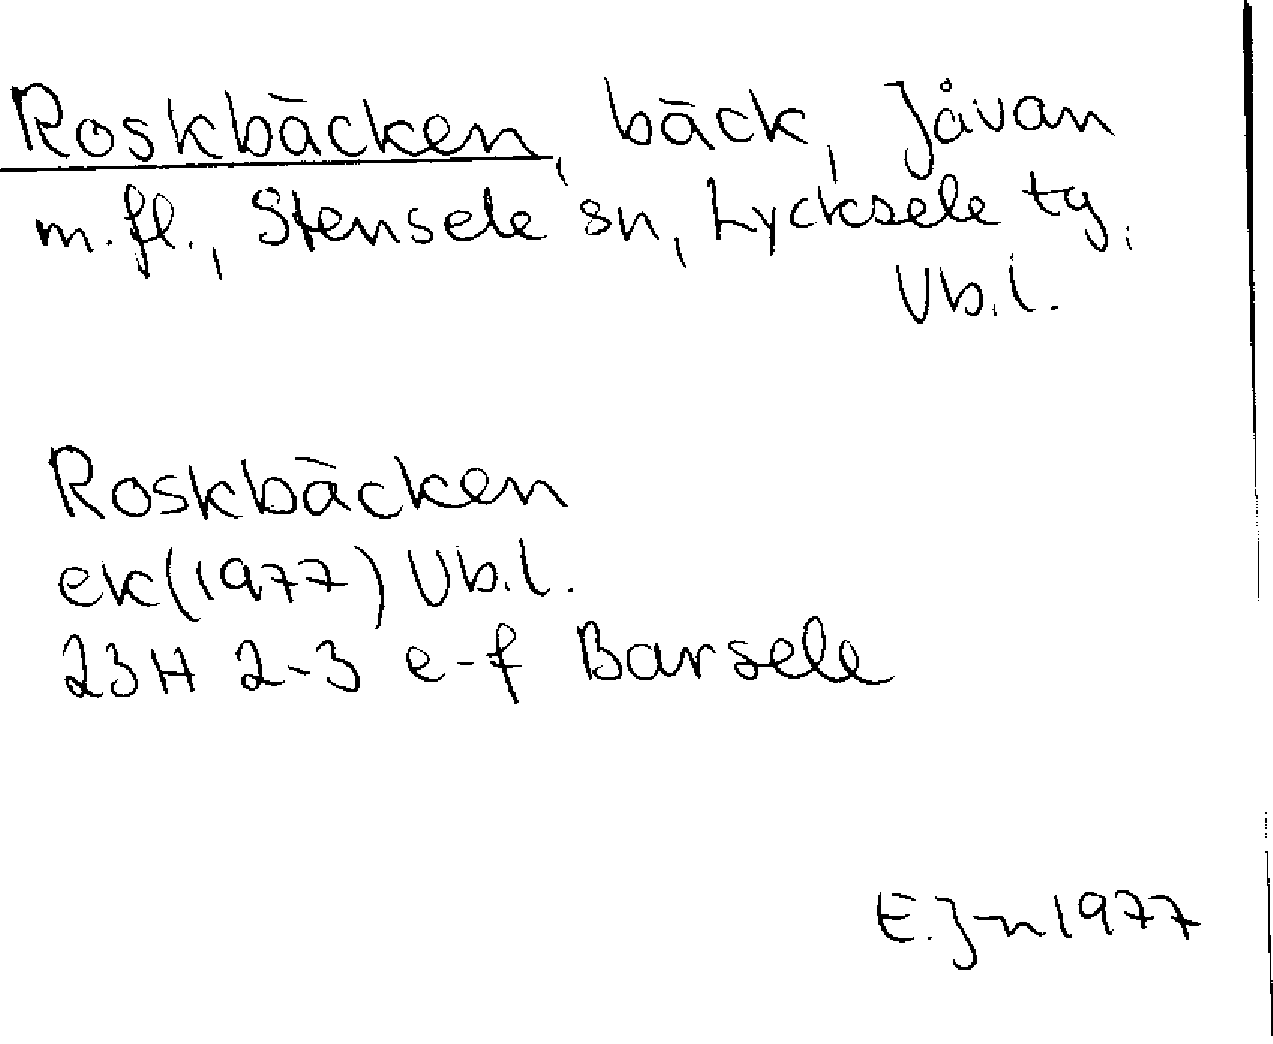 Roskbäcken, bäck, Jåvan
m.fl., Stensele sn, Lycksele tg,
Vb.l.
Roskbäcken
ek(1977) Vb.l.
23H 2-3 e-f Barsele
E.J-n 1977